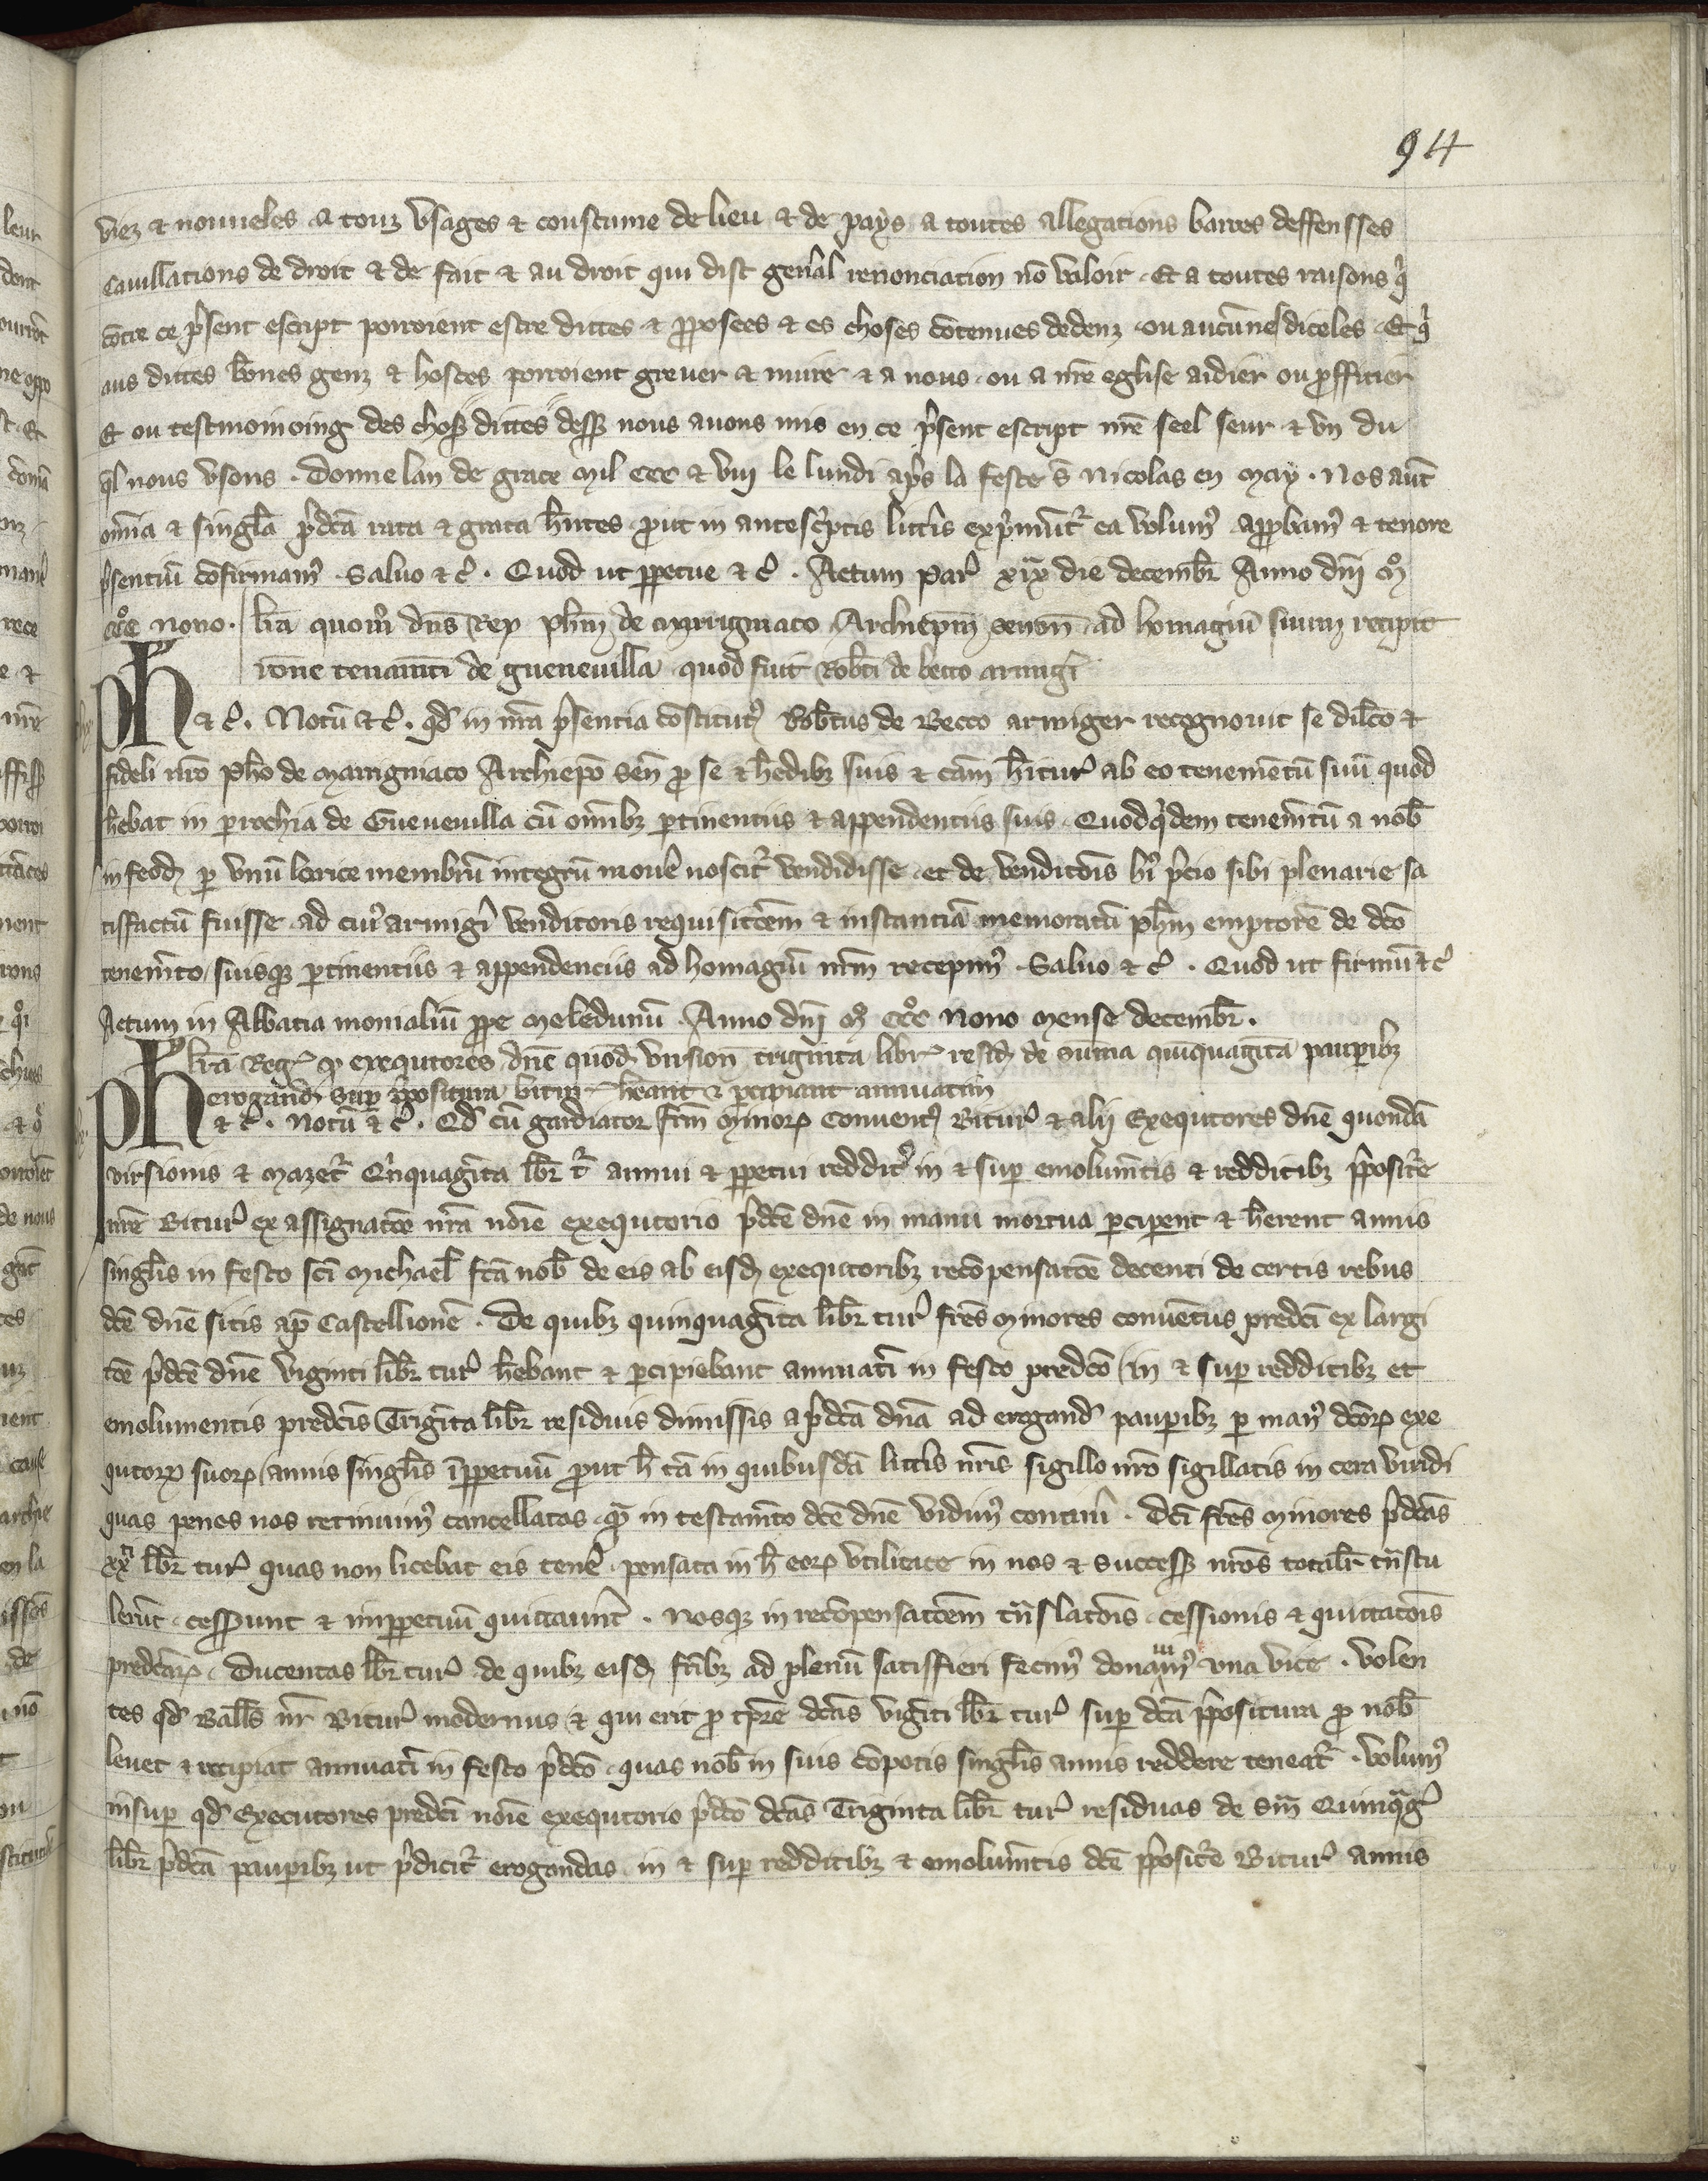 94
viez et nouueles a touz vsages et coustume de lieu et de pays a toutes allegations barres deffensses
cauillations de droit et de fait et au droit qui dist gen̄al renonciation nō valoir . Et a toutes raisons q̾
cōtre ce p̾sent escript porroient estre dittes et ꝓposees et es choses cōtenues dedenz ou aucunes diceles . Et q̾
aus dittes bōnes genz et hostes porroient greuer et nuire et a nous ou a nr̄e eglise aidier ou ꝓffitier
Et ou tesmoinoing des choses dittes dess̄ nous auons mis en ce p̾sent escript nr̄e seel seur et vn du
q̄l nous vsons . Donne lan de grace mil ccc et viij le lundi ap̄s la feste s̄ Nicolas en may . Nos aut̄
om̄ia et singl̄a p̾dc̄a rata et grata h̄ntes ꝓut in antesc̾ptis litt̄is exp̾munt᷑ ea volum᷒ approbam᷒ et tenore
p̾sentiū cōfirmam᷒ . Saluo et c̄ . Quod ut ꝑpetue et c̄ . Actum Par᷑ xix die decembr̄ Anno dn̄i mͦ
cccͦ nono . lr̄a quom̄ dn̄s Rex ph̄m de marrigniaco Archiepm̄ senon̄ ad homagiū suum recipit
rōne tenam̄ti de gueneuilla quod fuit Rob̄ti de becco armig̾i
Ph et c̄ . Notū et c̄ . qd̄ in nr̄a p̾sentia cōstitut᷒ Rob̄tus de Becco armiger recognouit se dil̄co et
fideli nr̄o ph̄o de marrigniaco Archiepō sen̄ ꝓ se et h̄edibꝫ suis et cām h̄itur᷑ ab eo tenemētū suū quod
h̄ebat in parrochia de Gueneuilla cū om̄ibꝫ ꝑtinentiis et appendentiis suis . Quodq̾dem tenem̄tū a nob̄
in feodū ꝑ vnū lorice membrū integrū mouēr̄ noscit᷑ vendidisse et de venditōis h᷒i p̾cio sibi plenarie sa
tisfactū fuisse ad cui᷒ armig̾i venditoris requisitōem et instantiā memoratū ph̄m emptorē de dc̄o
tenem̄to suisqꝫ ꝑtinentiis et appendenciis ad homagiū nr̄m recepim᷒ . Saluo et c̄ . Quod ut firmū et c̄
Actum in Abbatia monialiū ꝓpe meledunū . Anno dn̄i mͦ cccͦ nono mense decembr̄ .
lr̄a Reg᷑ ꝙ exequtores dn̄e quōd virsion̄ triginta libr᷑ resid᷑ de sūma quīquagīta pauꝑibꝫ
erogand᷑ suꝑ p̾positura bitur᷑ h̄eant et ꝑcipiant annuatim
Ph et c̄ . Notū et c̄ . Qd̄ cū gardiator fr̄m minorꝝ Conuent᷒ Bitur᷑ et alij Exequtores dn̄e quondā
virsionis et mazet᷑ Q̾nquagīta libr̄ t᷑ annui et ꝑpetui reddit᷒ in et suꝑ emolum̄tis et redditibꝫ p̾posit᷑e
nr̄e Bitur᷑ ex assignatōe nr̄a noīe exequtorio p̾dc̄e dn̄e in manu mortua ꝑciperent et h̄erent annis
singl̄is in festo sc̄i michael̄ fc̄a nob̄ de eis ab eisd᷑ exequtoribꝫ recōpensatōe decenti de certis rebus
dc̄e dn̄e sitis ap̄ Castellionē . De quibꝫ quinquagīta libr̄ tur᷑ fr̄es minores conuētus predc̄i ex largi
tōe p̾dc̄e dn̄e viginti libr̄ tur᷑ h̄ebant et ꝑcipiebant annuatī in festo predc̄o in et suꝑ redditibꝫ et
emolumentis predc̄is Trigīta libr̄ residuis dimissis a p̾dc̄a dn̄a ad erogand᷑ pauꝑibꝫ ꝑ man᷒ dc̄orꝝ exe
qutorꝝ suorꝝ annis singl̄is īꝑpetuū ꝓut h̄ tā in quibusdā litt̄is nr̄is sigillo nr̄o sigillatis in cera viridi
quas penes nos retinuim᷒ cancellatas q̾ in testam̄to dc̄e dn̄e vidim᷒ contin̄i . Dc̄i fr̄es minores p̾dc̄as
xxͭͥ libr̄ tur᷑ quas non licebat eis tenēr̄ pensata in h̄ eorꝝ vtilitate in nos et success̄ nr̄os totalr̄ tn̄stu
lerūt cesserunt et imꝑpetuū quittauer̄t . Nosqꝫ in recōpensatōem tn̄slatōis cessionis et quittatōis
predc̄arꝝ . Ducentas libr̄ tur᷑ de quibꝫ eisd᷑ fr̄ibꝫ ad plenū satisfieri fecim᷒ donauim᷒ vna vice . Volen
tes qd̄ Ball̄s nr̄ Bitur᷑ modernus et qui erit ꝓ tp̄re dc̄as vigīti libr̄ tur᷑ suꝑ dc̄a p̾positura ꝓ nob̄
leuet et recipiat annuatī in festo p̾dc̄o quas nob̄ in suis cōpotis singl̄is annis reddere teneat᷑ . Volum᷒
insuꝑ qd̄ Executores predc̄i noīe exequtorio p̾dc̄o dc̄as Triginta libr̄ tur᷑ residuas de sum̄ Quinq̾g᷑
libr̄ p̾dc̄a pauꝑibꝫ ut p̾dicit᷑ erogandas in et suꝑ redditibꝫ et emolum̄tis dc̄e p̾posit᷑e Bitur᷑ annis